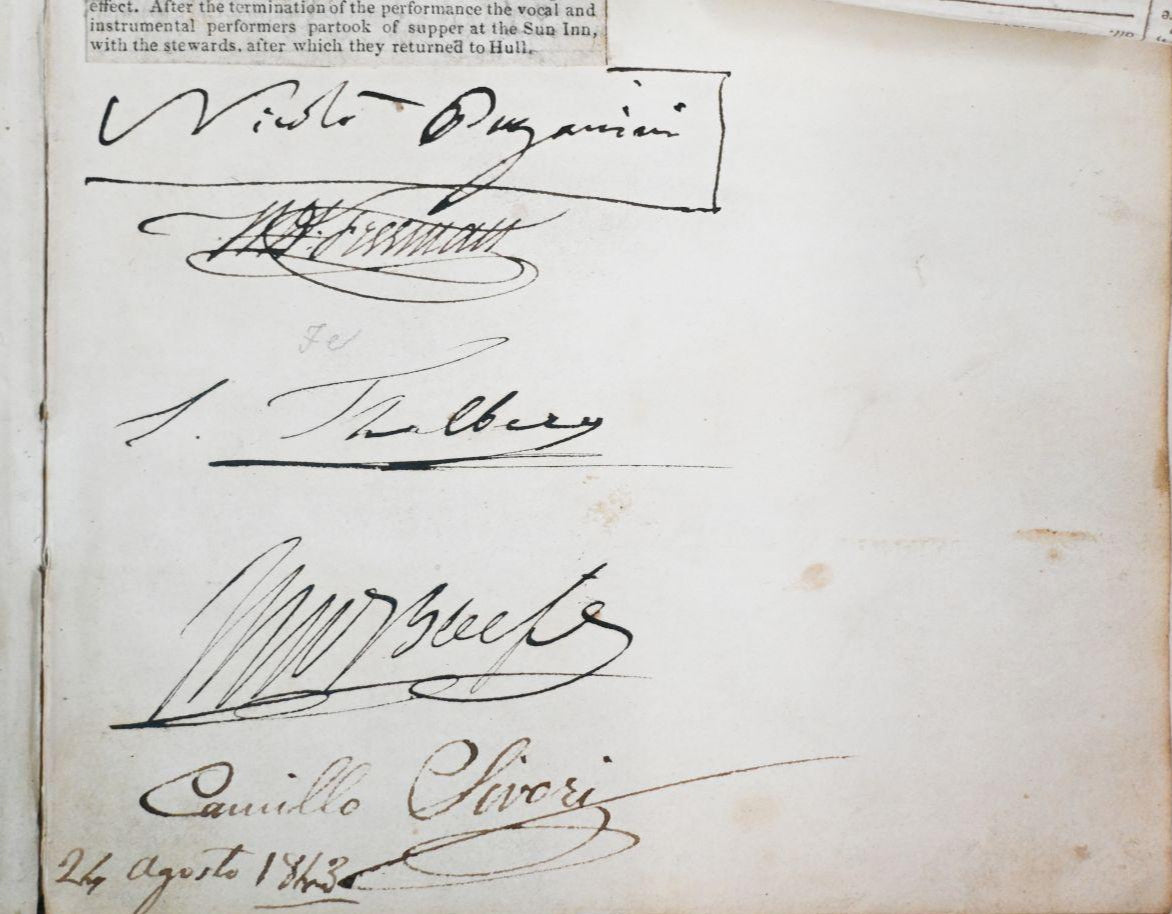 effect. After the termination of the performance the vocal and
instrumental performers partook of supper at the Sun Inn,
with the stewards, after which they returned to Hull.
Nicolò Paganini
Freeman
S. Thalberg
MW Balfe
Camillo Sivori
24 Agosto 1843